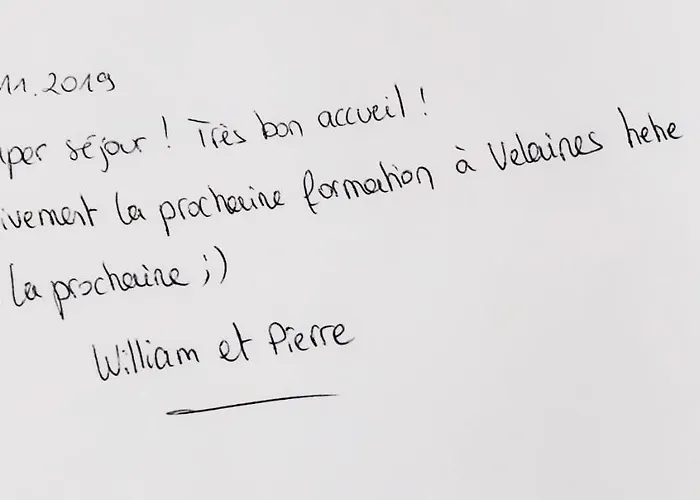 11.2019
per séjour ! Très bon accueil !
ivement la prochaine formation à Velaines hehe
la prochaine ;)
William et Pierre